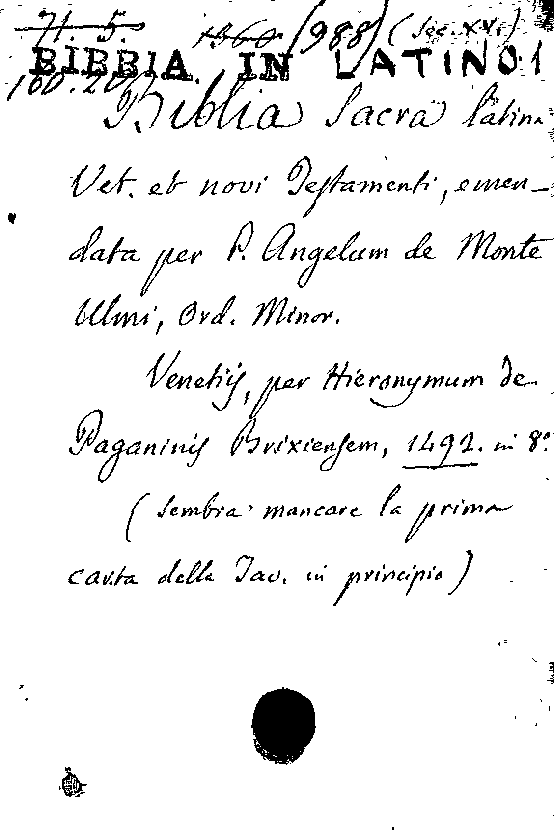 71. 5. 1360 (988) (Sec. XV.)
BIBBIA IN LATINO 1
Biblia Sacra latina
Vet. et novi Testamenti, emen-
data per P. Angelum de Monte
Ulmi, Ord. Minor.
Venetijs, per Hieronymum de
Paganinis Brixiensem, 1492. in 8.º
(sembra mancare la prima
carta della Tav. in principio)